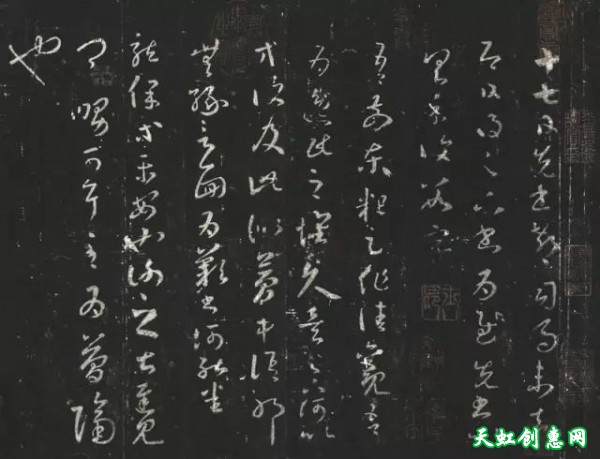 十七日先書郗司馬未去
即日得足下書為慰先書以
具示復數字
吾前東粗足作佳觀吾
為逸民之懷久矣足下何以
方復及此似夢中語耶
無緣言面為歎書何能悉
龍保等平安也謝之甚遲見
卿舅可耳至為簡隔
也
天虹创惠网